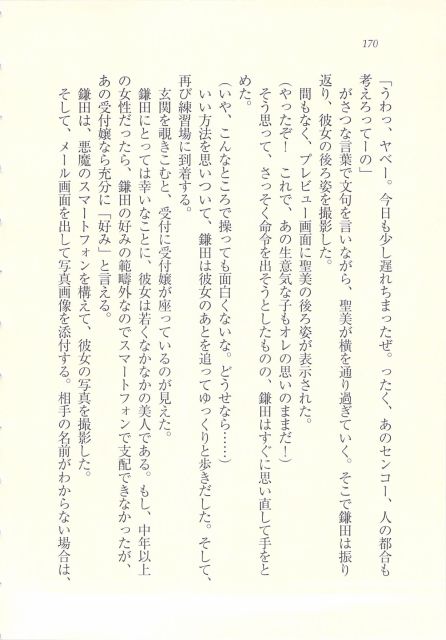 170
「うわっ、ヤベー。今日も少し遅れちまったぜ。ったく、あのセンコー、人の都合も
考えろってーの」
がさつな言葉で文句を言いながら、聖美が横を通り過ぎていく。そこで鎌田は振り
返り、彼女の後ろ姿を撮影した。
間もなく、プレビュー画面に聖美の後ろ姿が表示された。
(やったぞ! これで、あの生意気な子もオレの思いのままだ!)
そう思って、さっそく命令を出そうとしたものの、鎌田はすぐに思い直して手をと
めた。
(いや、こんなところで操っても面白くないな。どうせなら……)
いい方法を思いついて、鎌田は彼女のあとを追ってゆっくりと歩きだした。そして、
再び練習場に到着する。
玄関を覗きこむと、受付に受付嬢が座っているのが見えた。
鎌田にとっては幸いなことに、彼女は若くなかなかの美人である。もし、中年以上
の女性だったら、鎌田の好みの範疇外なのでスマートフォンで支配できなかったが、
あの受付嬢なら充分に「好み」と言える。
鎌田は、悪魔のスマートフォンを構えて、彼女の写真を撮影した。
そして、メール画面を出して写真画像を添付する。相手の名前がわからない場合は、